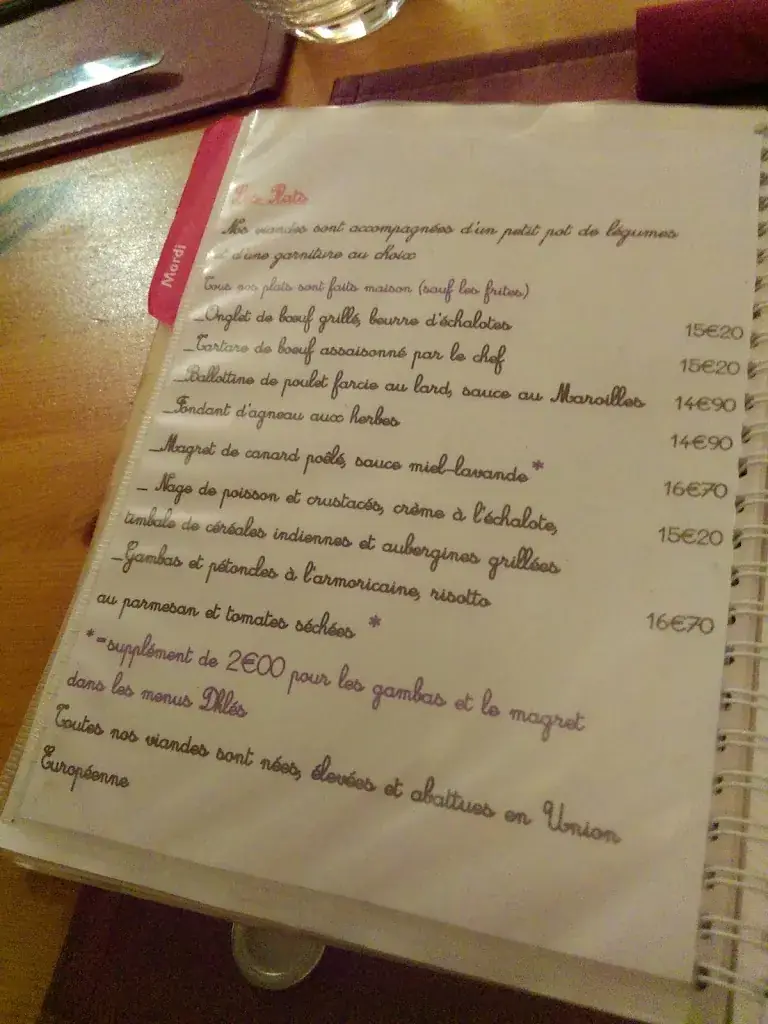 Les Plats
Nos viandes sont accompagnées d'un petit pot de légumes
et d'une garniture au choix
Tous nos plats sont faits maison (sauf les frites)
_Onglet de boeuf grillé, beurre d'échalotes 15€20
_Tartare de boeuf assaisonné par le chef 15€20
_Ballottine de poulet farcie au lard, sauce au Maroilles 14€90
_Fondant d'agneau aux herbes 14€90
_Magret de canard poêlé, sauce miel-lavande* 16€70
_ Nage de poisson et crustacés, crème à l'échalote, 15€20
timbale de céréales indiennes et aubergines grillées
_Gambas et pétoncles à l'armoricaine, risotto 16€70
au parmesan et tomates séchées *
*=supplément de 2€00 pour les gambas et le magret
dans les menus Dklés
Toutes nos viandes sont nées, élevées et abattues en Union
Européenne
Mardi